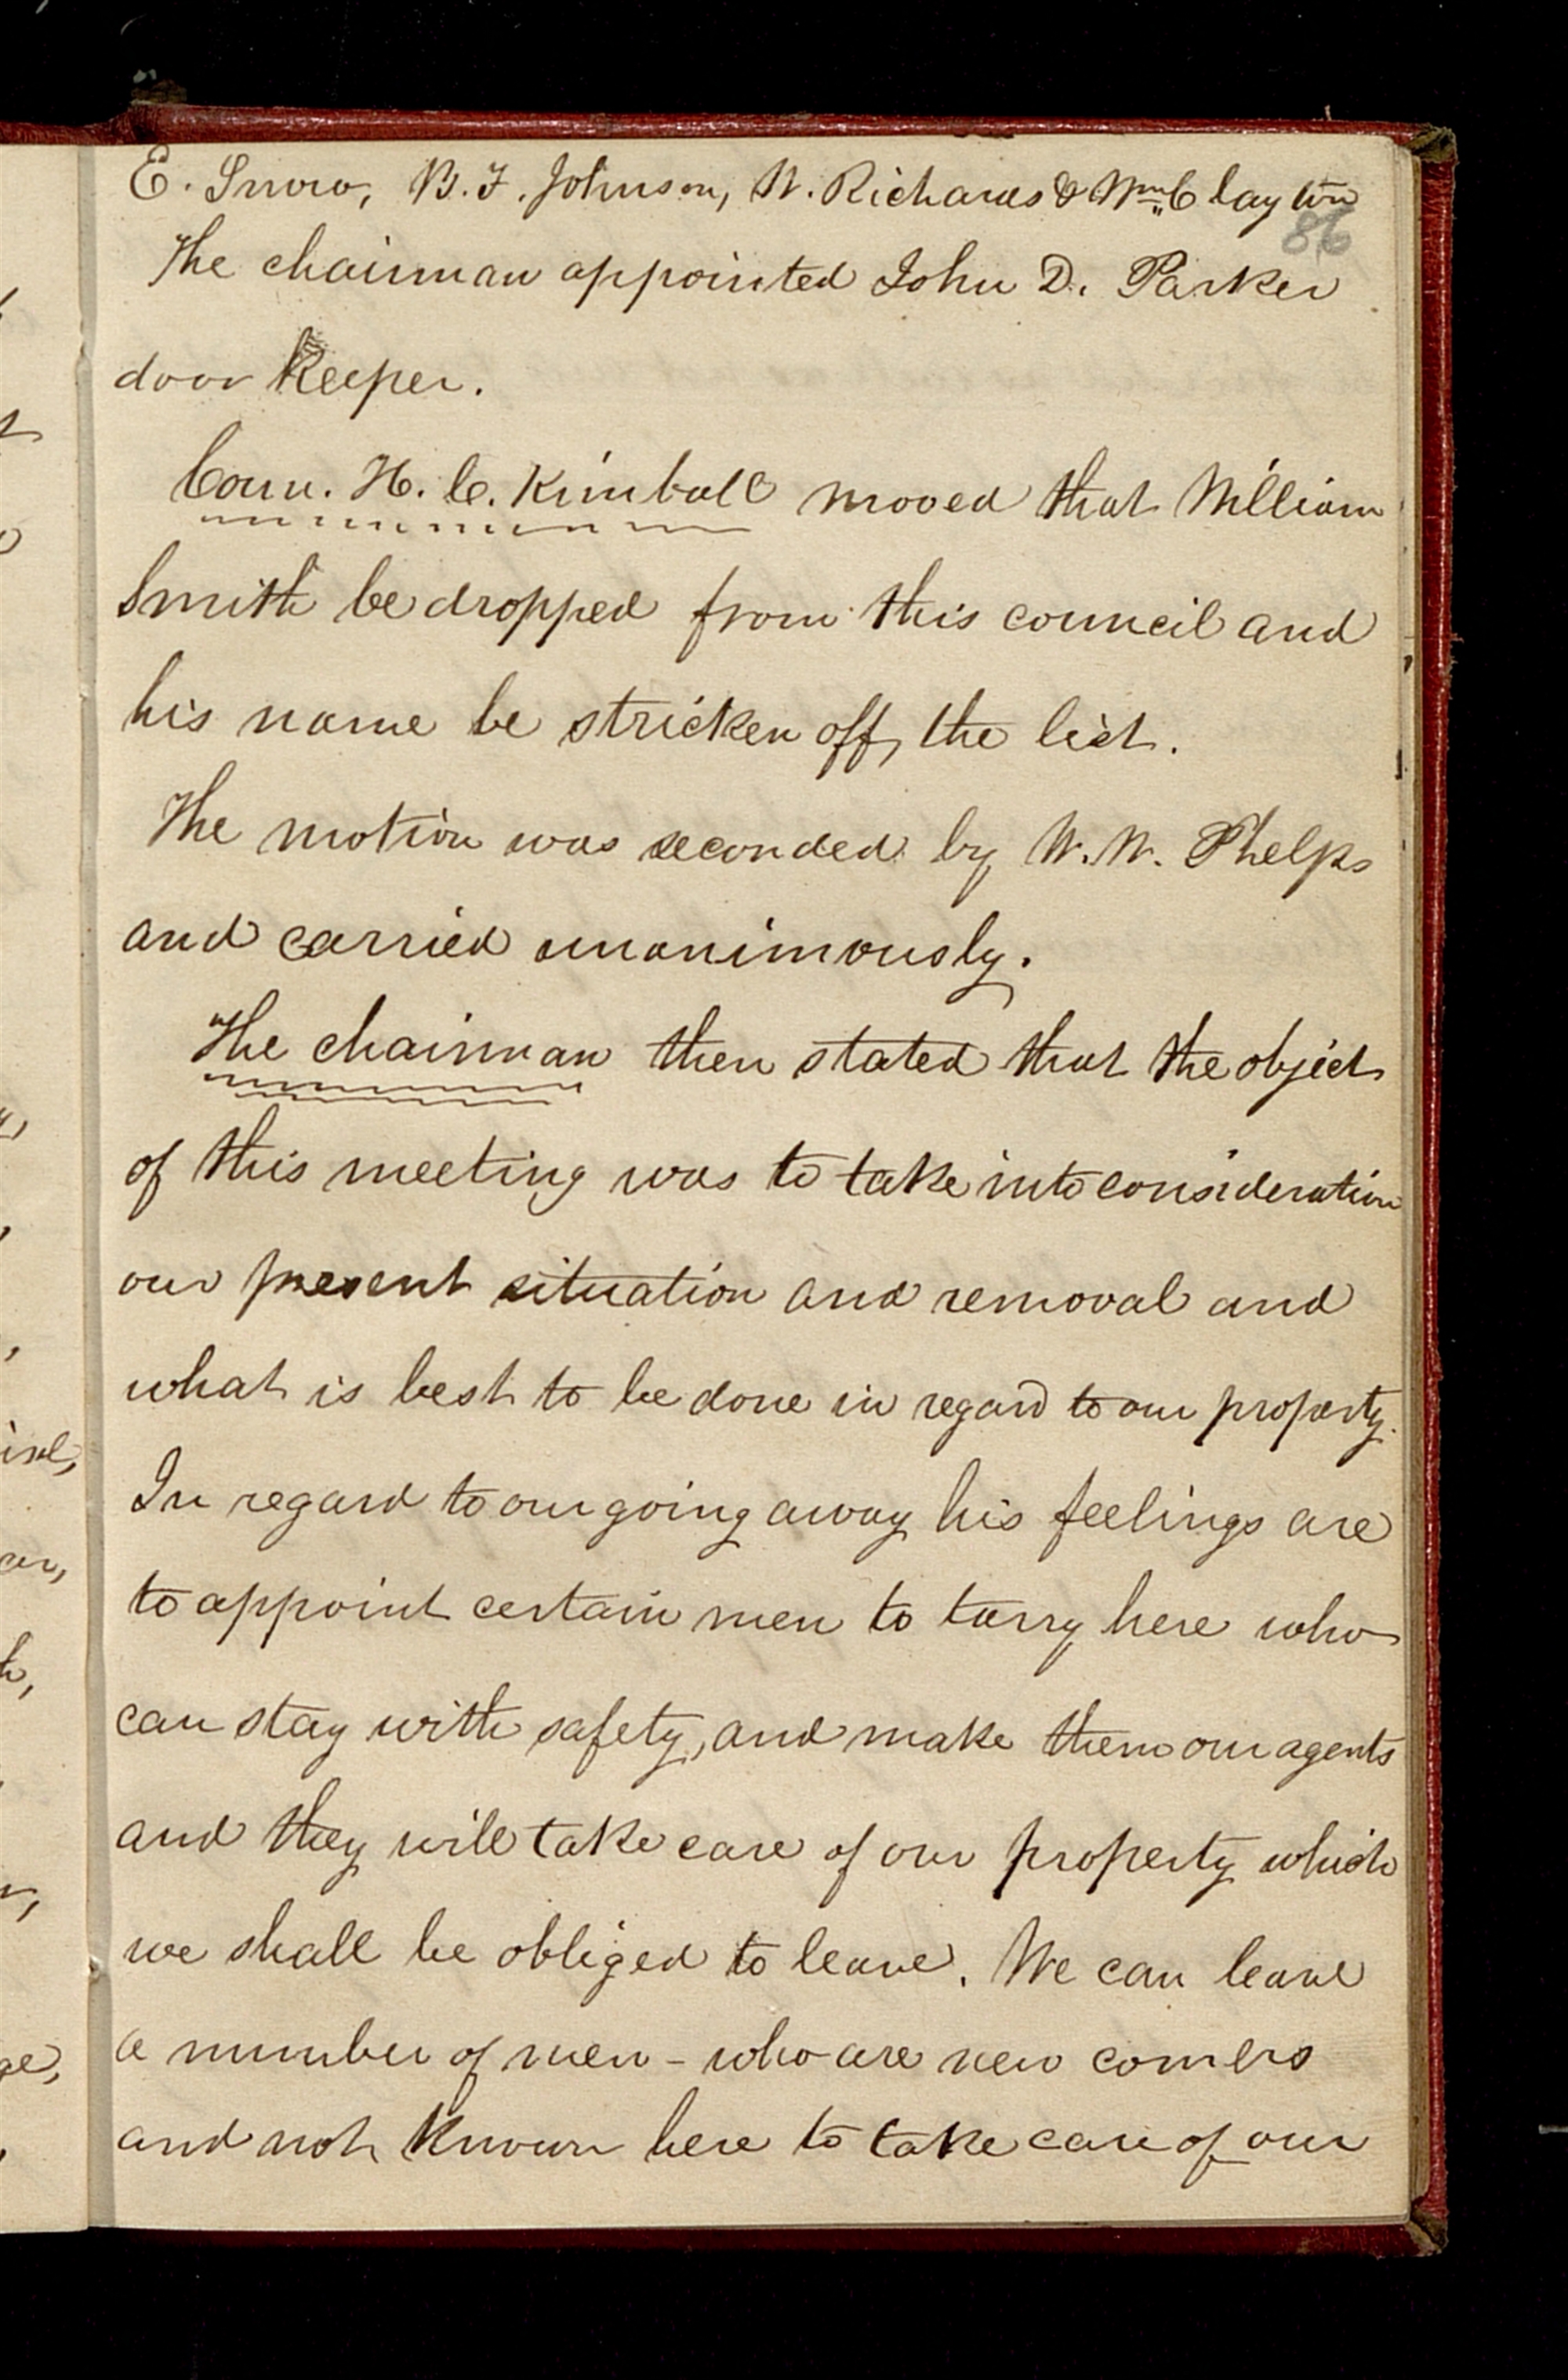 E. Snow, B. F. Johnson, W. Richards & Wm Clayton
86
The chairman appointed John D. Parker
door Keeper.
Coun. H. C. Kimball moved that William
Smith be dropped from this council and
his name be stricken off the list.
The motion was seconded by W. W. Phelps
and carried unanimously.
The chairman then stated that the object
of this meeting was to take into consideration
our present situation and removal and
what is best to be done in regard to our property.
In regard to our going away his feelings are
to appoint certain men to tarry here who
can stay with safety, and make them our agents
and they will take care of our property which
we shall be obliged to leave. We can leave
a number of men - who are new comers
and not known here to take care of our